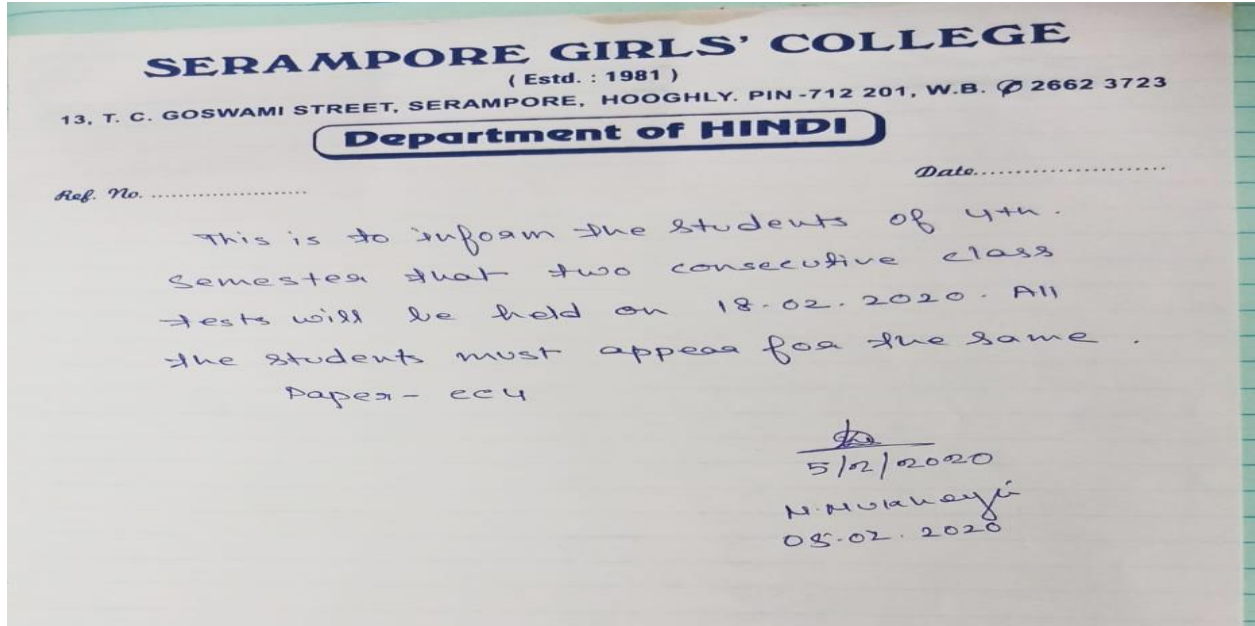 SERAMPORE GIRLS' COLLEGE
( Estd. : 1981 )
13, T. C. GOSWAMI STREET, SERAMPORE, HOOGHLY. PIN-712 201, W.B. ✆ 2662 3723
Department of HINDI
Ref. No. ........................ Date..........................
This is to inform the students of 4th.
Semester that two consecutive class
tests will be held on 18.02.2020. All
the students must appear for the same.
Paper- CC4
5/2/2020
05.02.2020